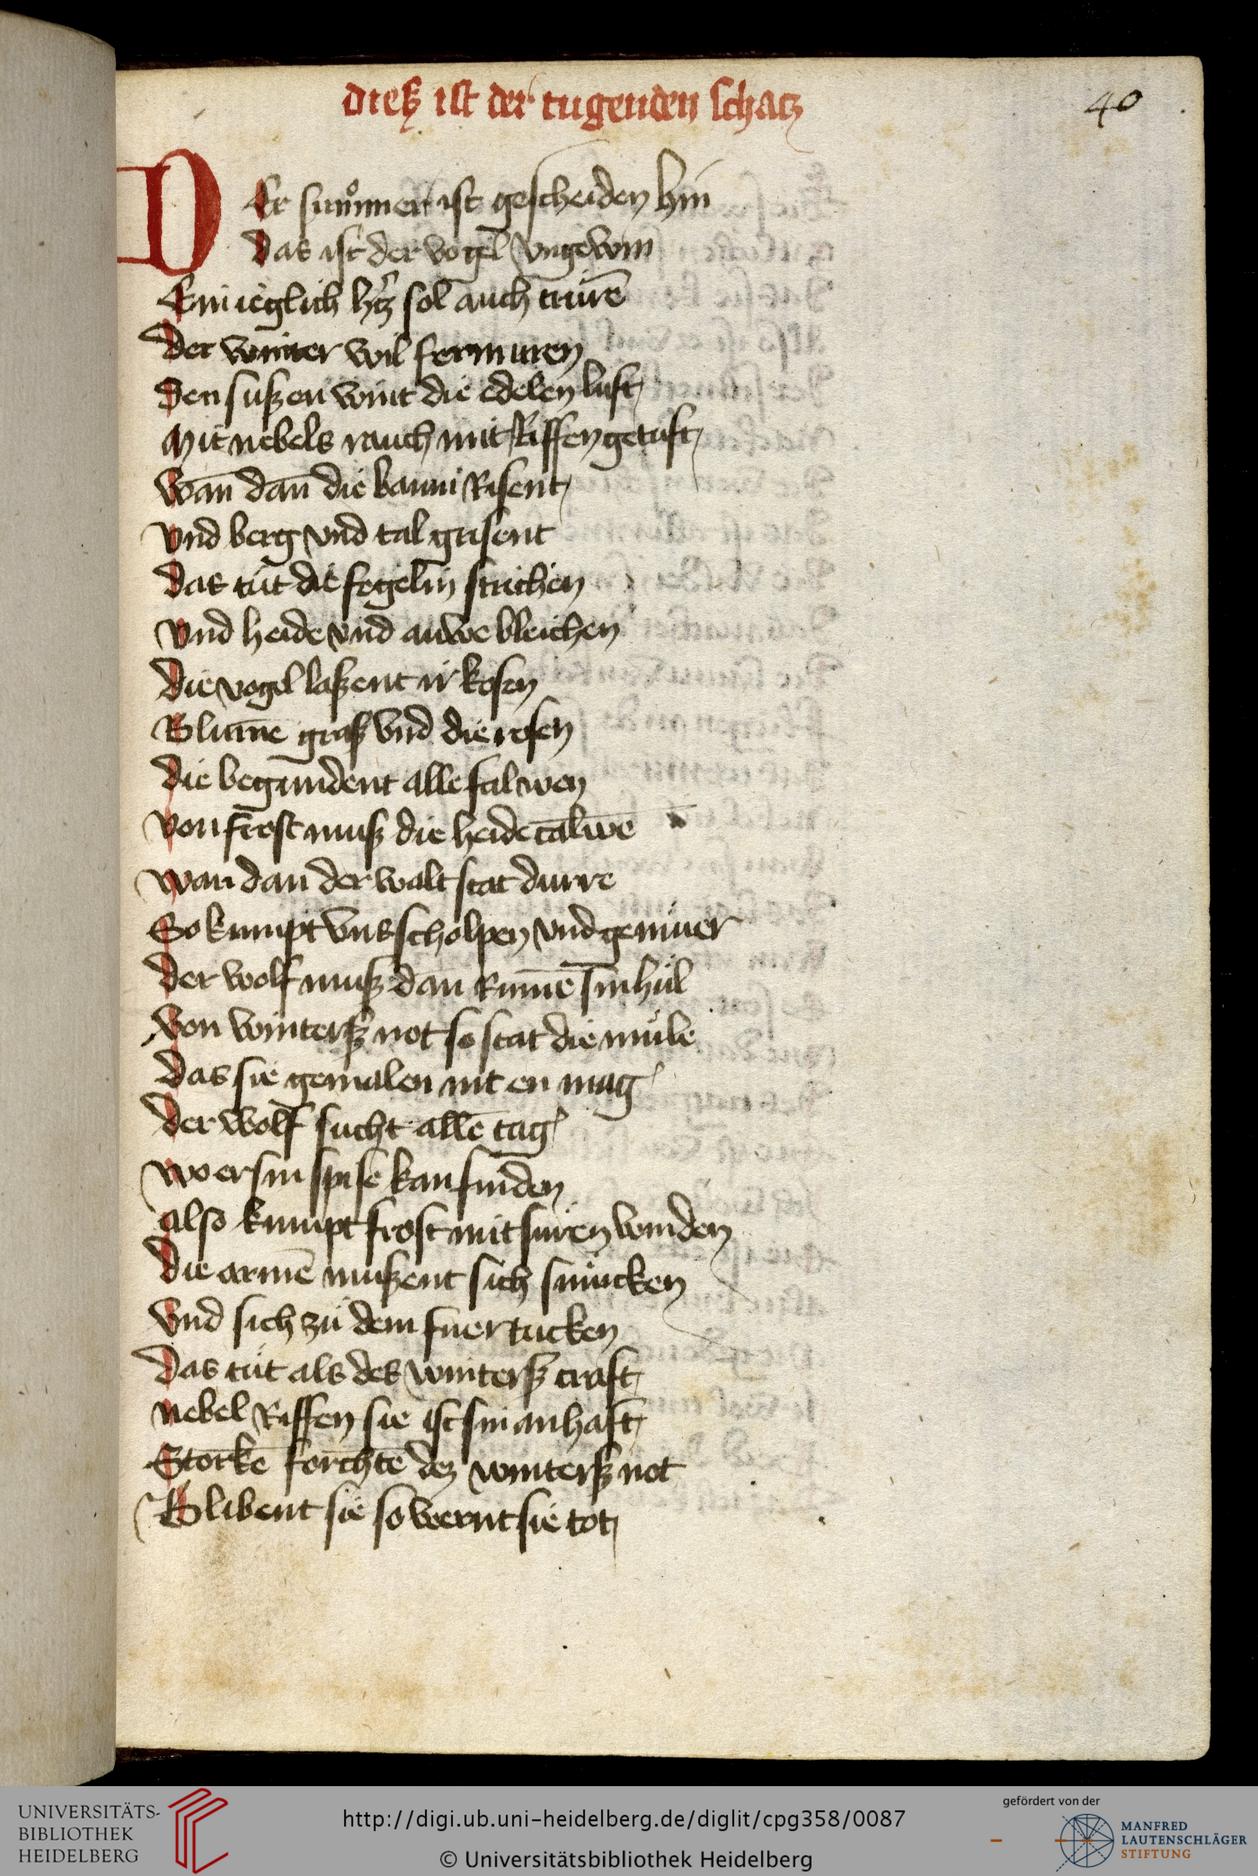 dieß ist der tugenden schatz
40
DEr summer ist gescheiden hin
das ist der vogel vngewin
Ein ieglich htz sol auch trurē
Der winter wil fermuren
Den sußen wint die edelen luft
Mit nebels rauch mit Riffen getuft
wan dan die baum Risent
vnd berg vnd tal grisent
Das tut die fegelin strichen
vnd heide vnd auwe bleichen
Die vogel laßent ir kosen
Blumē graß vnd die rosen
die begundent alle falwen
von frost muß die heide talwē
wan dan der walt stat durre
So kumpt vns scholpen vnd gemuer
Der wolf muß dan Rumē sin hul
von winterß not so stat die mule
Das sie gemalen nit en mag
der wolf sucht allē tag
wo er sin spise kan finden
also kumpt frost mit suren winden
Die armē mußent sich smucken
vnd sich zu dem fuer tucken
Das tut als des winterß craft
nebel Riffen sie ist sin anhaft
Storkē forchtē dez winterß not
Blibent sie so wernt sie tot
UNIVERSITÄTS-
BIBLIOTHEK
HEIDELBERG
http://digi.ub.uni-heidelberg.de/diglit/cpg358/0087
© Universitätsbibliothek Heidelberg
gefördert von der
MANFRED
LAUTENSCHLÄGER
STIFTUNG